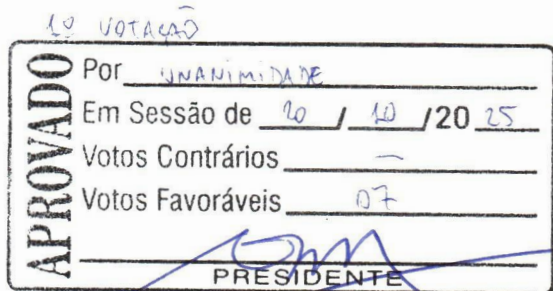 1º VOTAÇÃO
APROVADO
Por UNANIMIDADE
Em Sessão de 20 / 10 /20 25
Votos Contrários —
Votos Favoráveis 07
PRESIDENTE